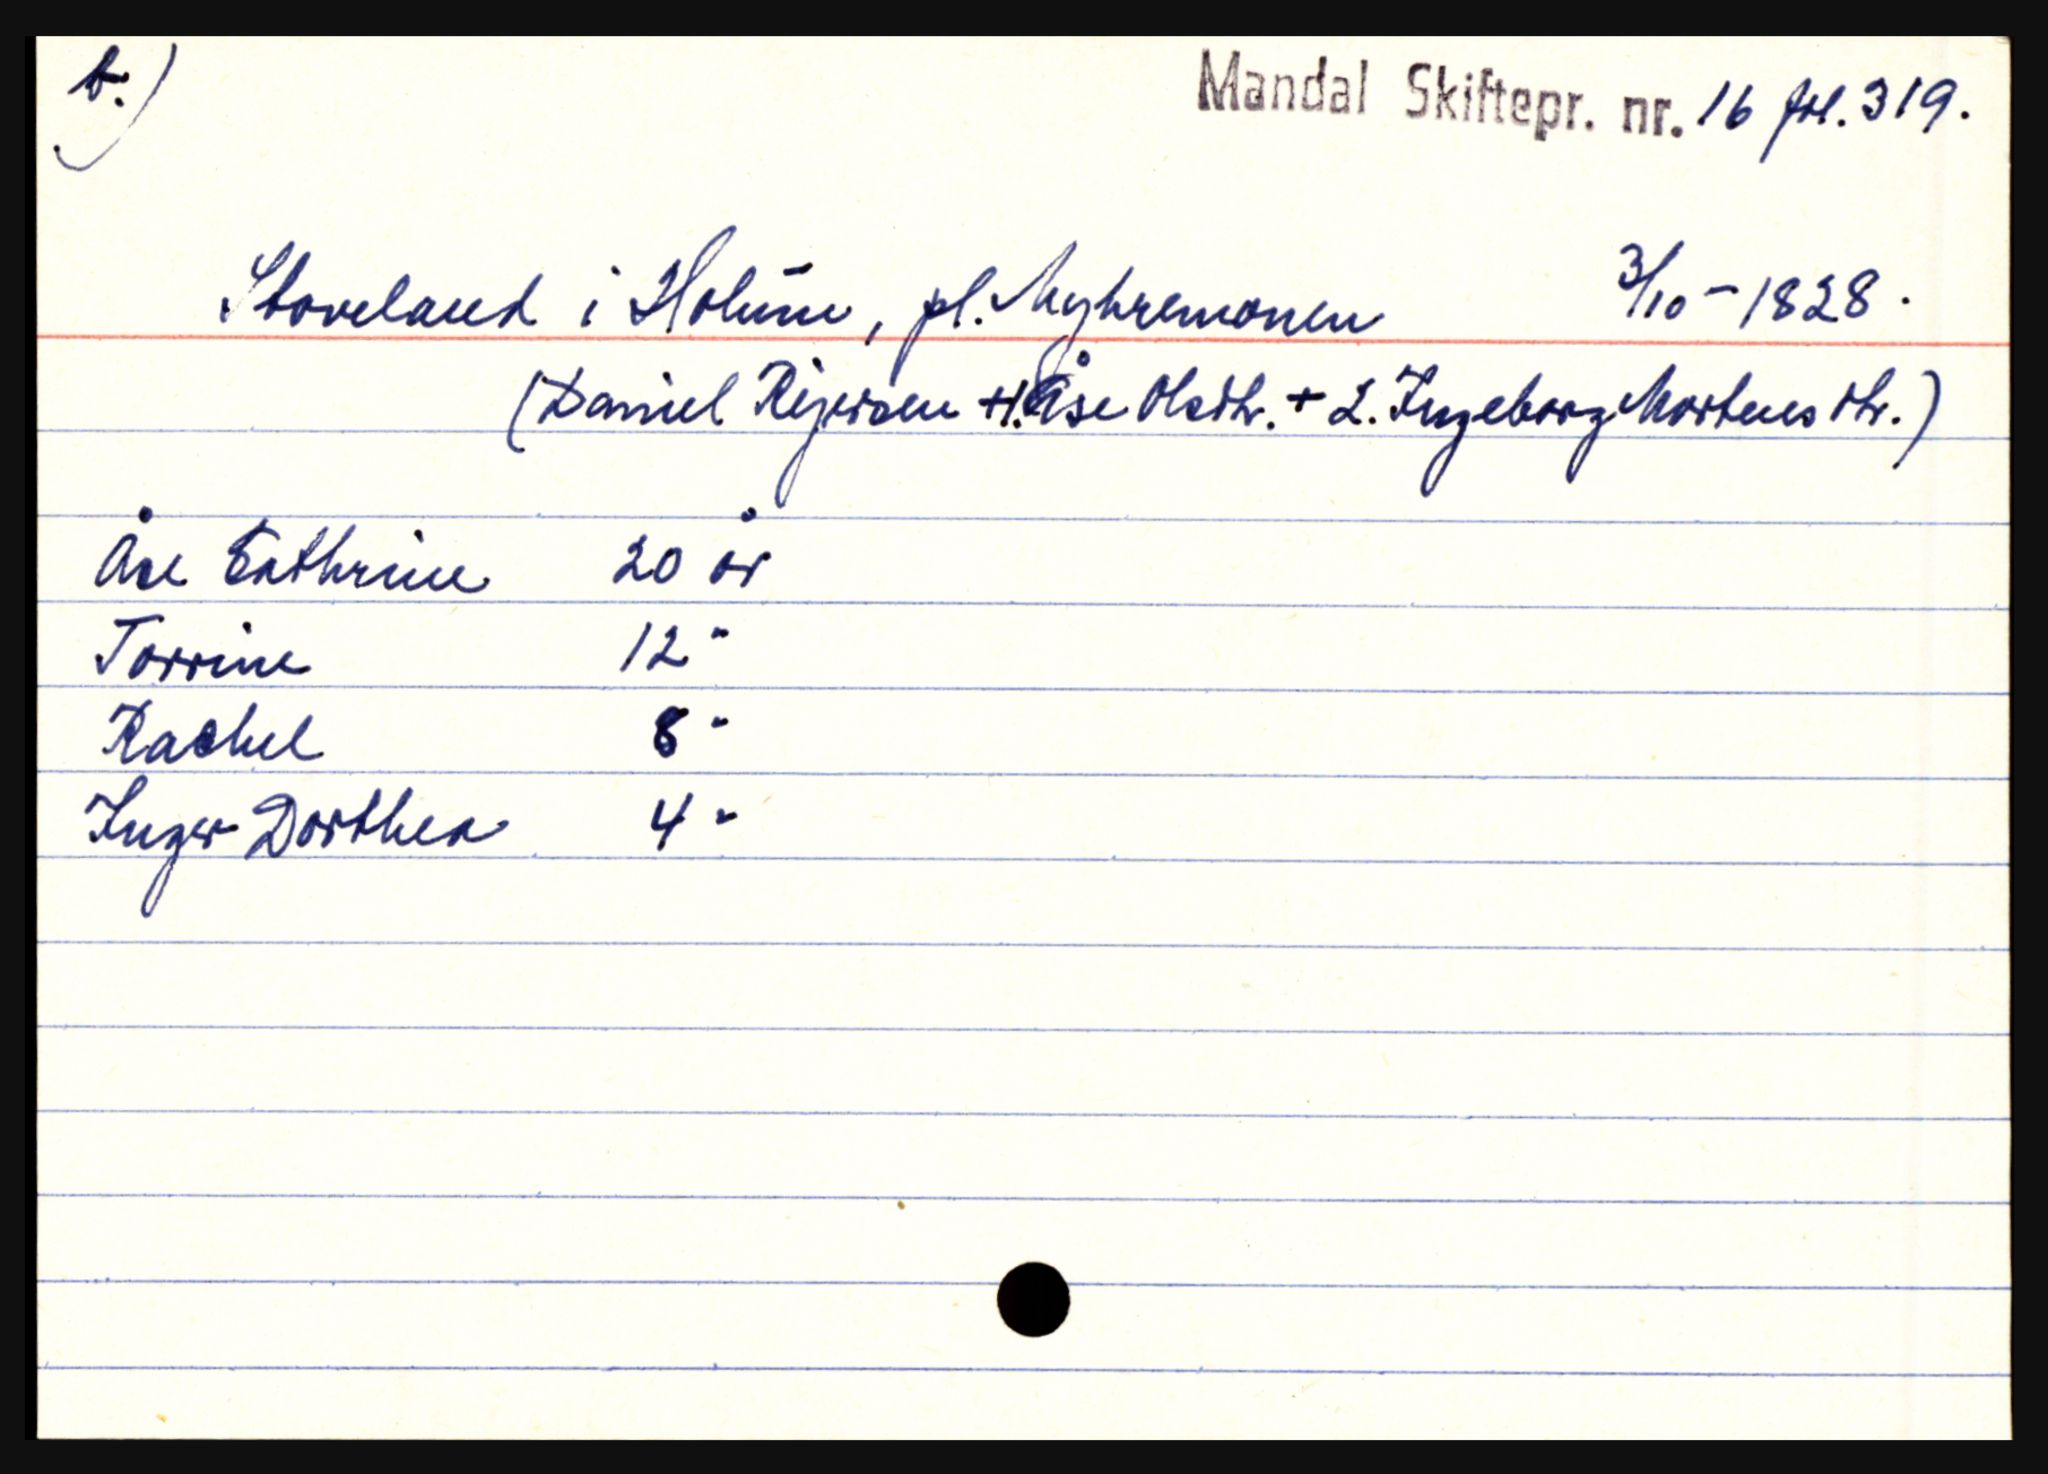 b.)
Mandal Skiftepr. nr. 16 fol. 319.
Stoveland i Holum, pl. Myhremonen 3/10-1828.
(Daniel Rejersen + 1. Åse Olsdtr. + 2. Ingeborg Mortensdtr.)
Åse Cathrine 20 år
Torrine 12 "
Rachel 8 "
Inger Dorthea 4 "